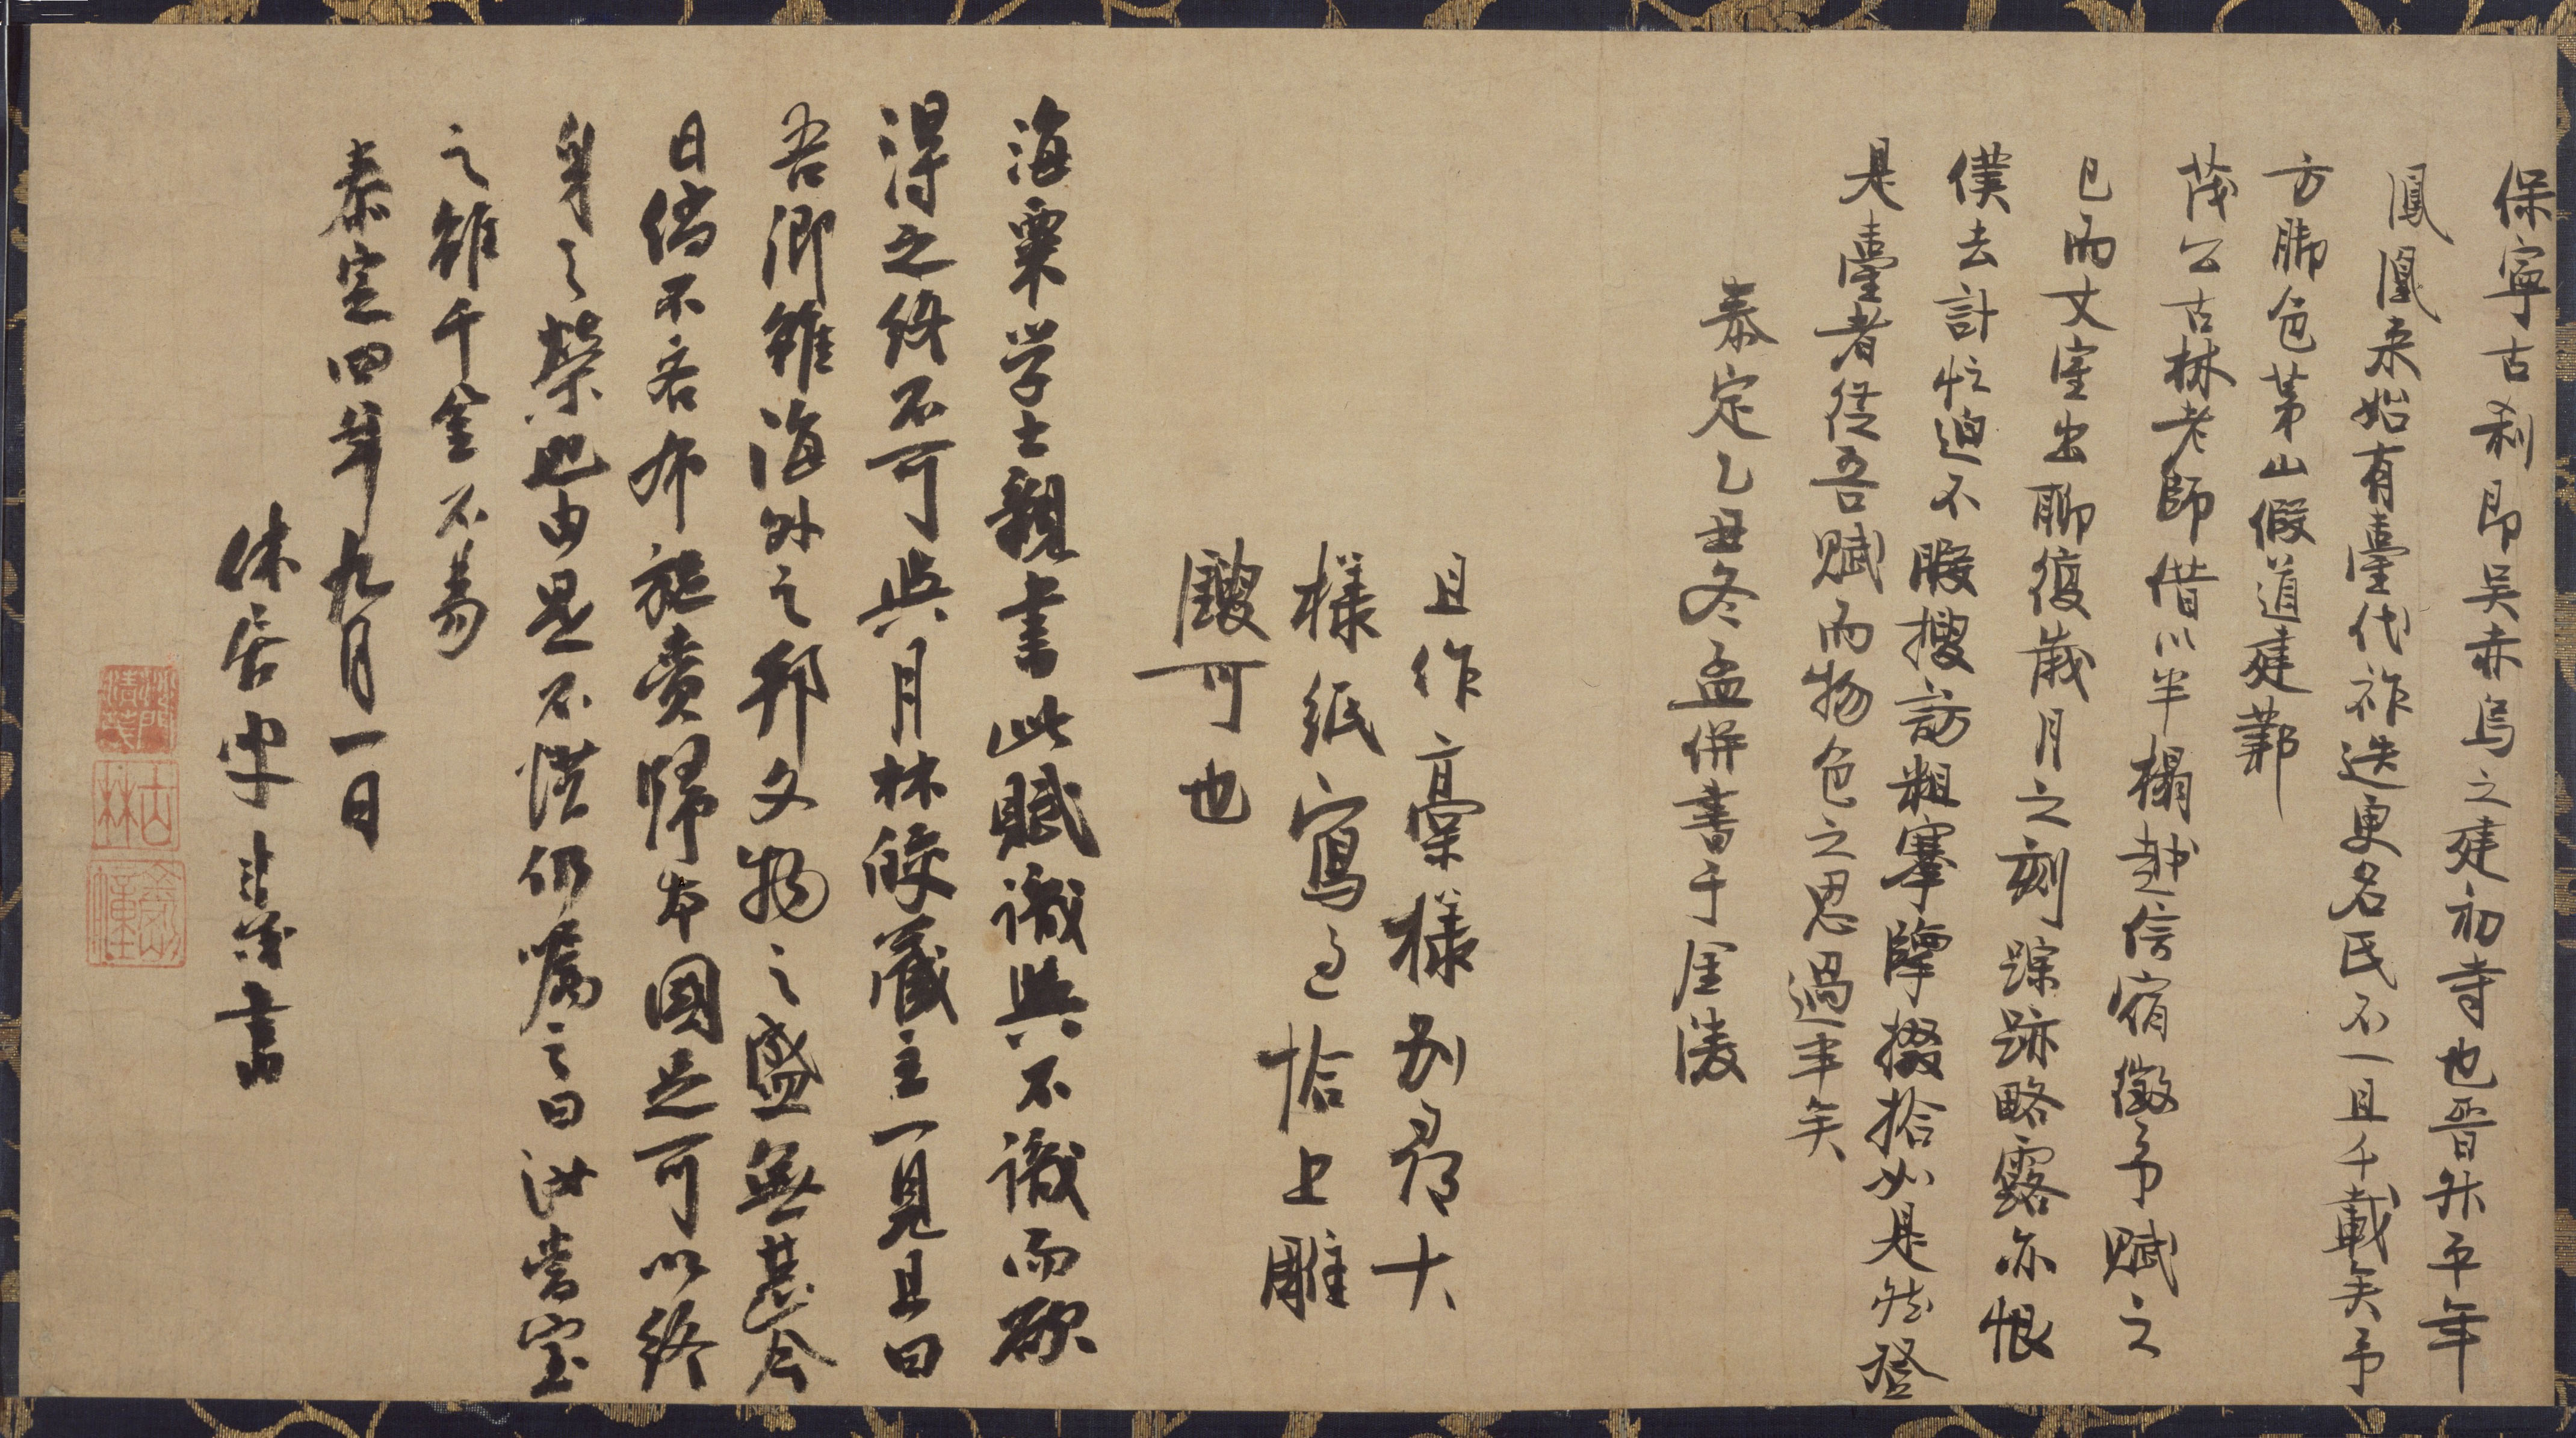 保寧古刹即吳赤烏之建初寺也晉升平年
鳳凰来始有臺代祚迭更名氏不一且千載矣予
方脚色茅山假道建鄴
茂公古林老師借以半榻越信宿徵予賦之
已而丈室出聊復歲月之刻蹤跡略露亦恨
僕去計忙迫不暇搜訪粗搴摩掇拾如是然登
是臺者從吾賦而物色之思過半矣
泰定乙丑冬孟併書于金陵
且作藁樣別尋大
樣紙寫過恰上雕
鍐可也
海粟学士親書此賦識與不識而欲
得之终不可與月林皎藏主一見且曰
吾卿雖海外之邦文物之盛無甚今
日倘不吝布施賣歸本國足可以終
身之榮也由是不惜仍囑之曰汝當宝
之雖千金不易
泰定四年九月一日
休居叟清茂書
古林